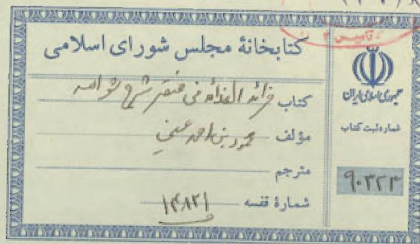 کتابخانهٔ مجلس شورای اسلامی
کتاب فرائد الفوائد فی مختصر شرح شواهد
مؤلف محمود بن احمد عینی
مترجم
شمارهٔ قفسه ۱۴۸۲۱
جمهوری اسلامی ایران
شمارهٔ ثبت کتاب
۹۰۳۲۳